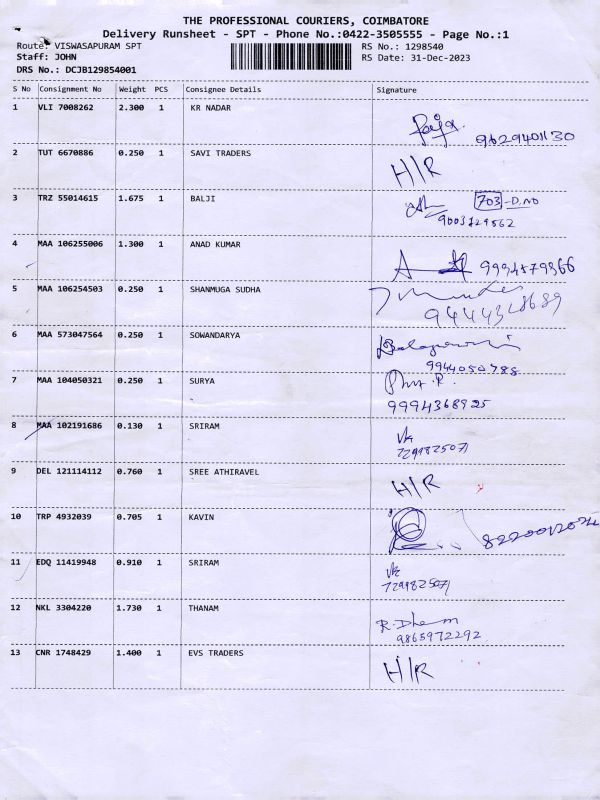 THE PROFESSIONAL COURIERS, COIMBATORE
Delivery Runsheet - SPT - Phone No.:0422-3505555 - Page No.:1
Route: VISWASAPURAM SPT RS No.: 1298540
Staff: JOHN RS Date: 31-Dec-2023
DRS No.: DCJB129854001
S No Consignment No Weight PCS Consignee Details Signature
1 VLI 7008262 2.300 1 KR NADAR
9629401130
2 TUT 6670886 0.250 1 SAVI TRADERS
H/R
3 TRZ 55014615 1.675 1 BALJI
703 - D.NO
9003129562
4 MAA 106255006 1.300 1 ANAD KUMAR
9994579366
5 MAA 106254503 0.250 1 SHANMUGA SUDHA
9444328689
6 MAA 573047564 0.250 1 SOWANDARYA
9944050788
7 MAA 104050321 0.250 1 SURYA
9994368925
8 MAA 102191686 0.130 1 SRIRAM
7299825071
9 DEL 121114112 0.760 1 SREE ATHIRAVEL
H/R
10 TRP 4932039 0.705 1 KAVIN
11 EDQ 11419948 0.910 1 SRIRAM
7299825071
12 NKL 3304220 1.730 1 THANAM
R. Dham
9865972292
13 CNR 1748429 1.400 1 EVS TRADERS
H/R